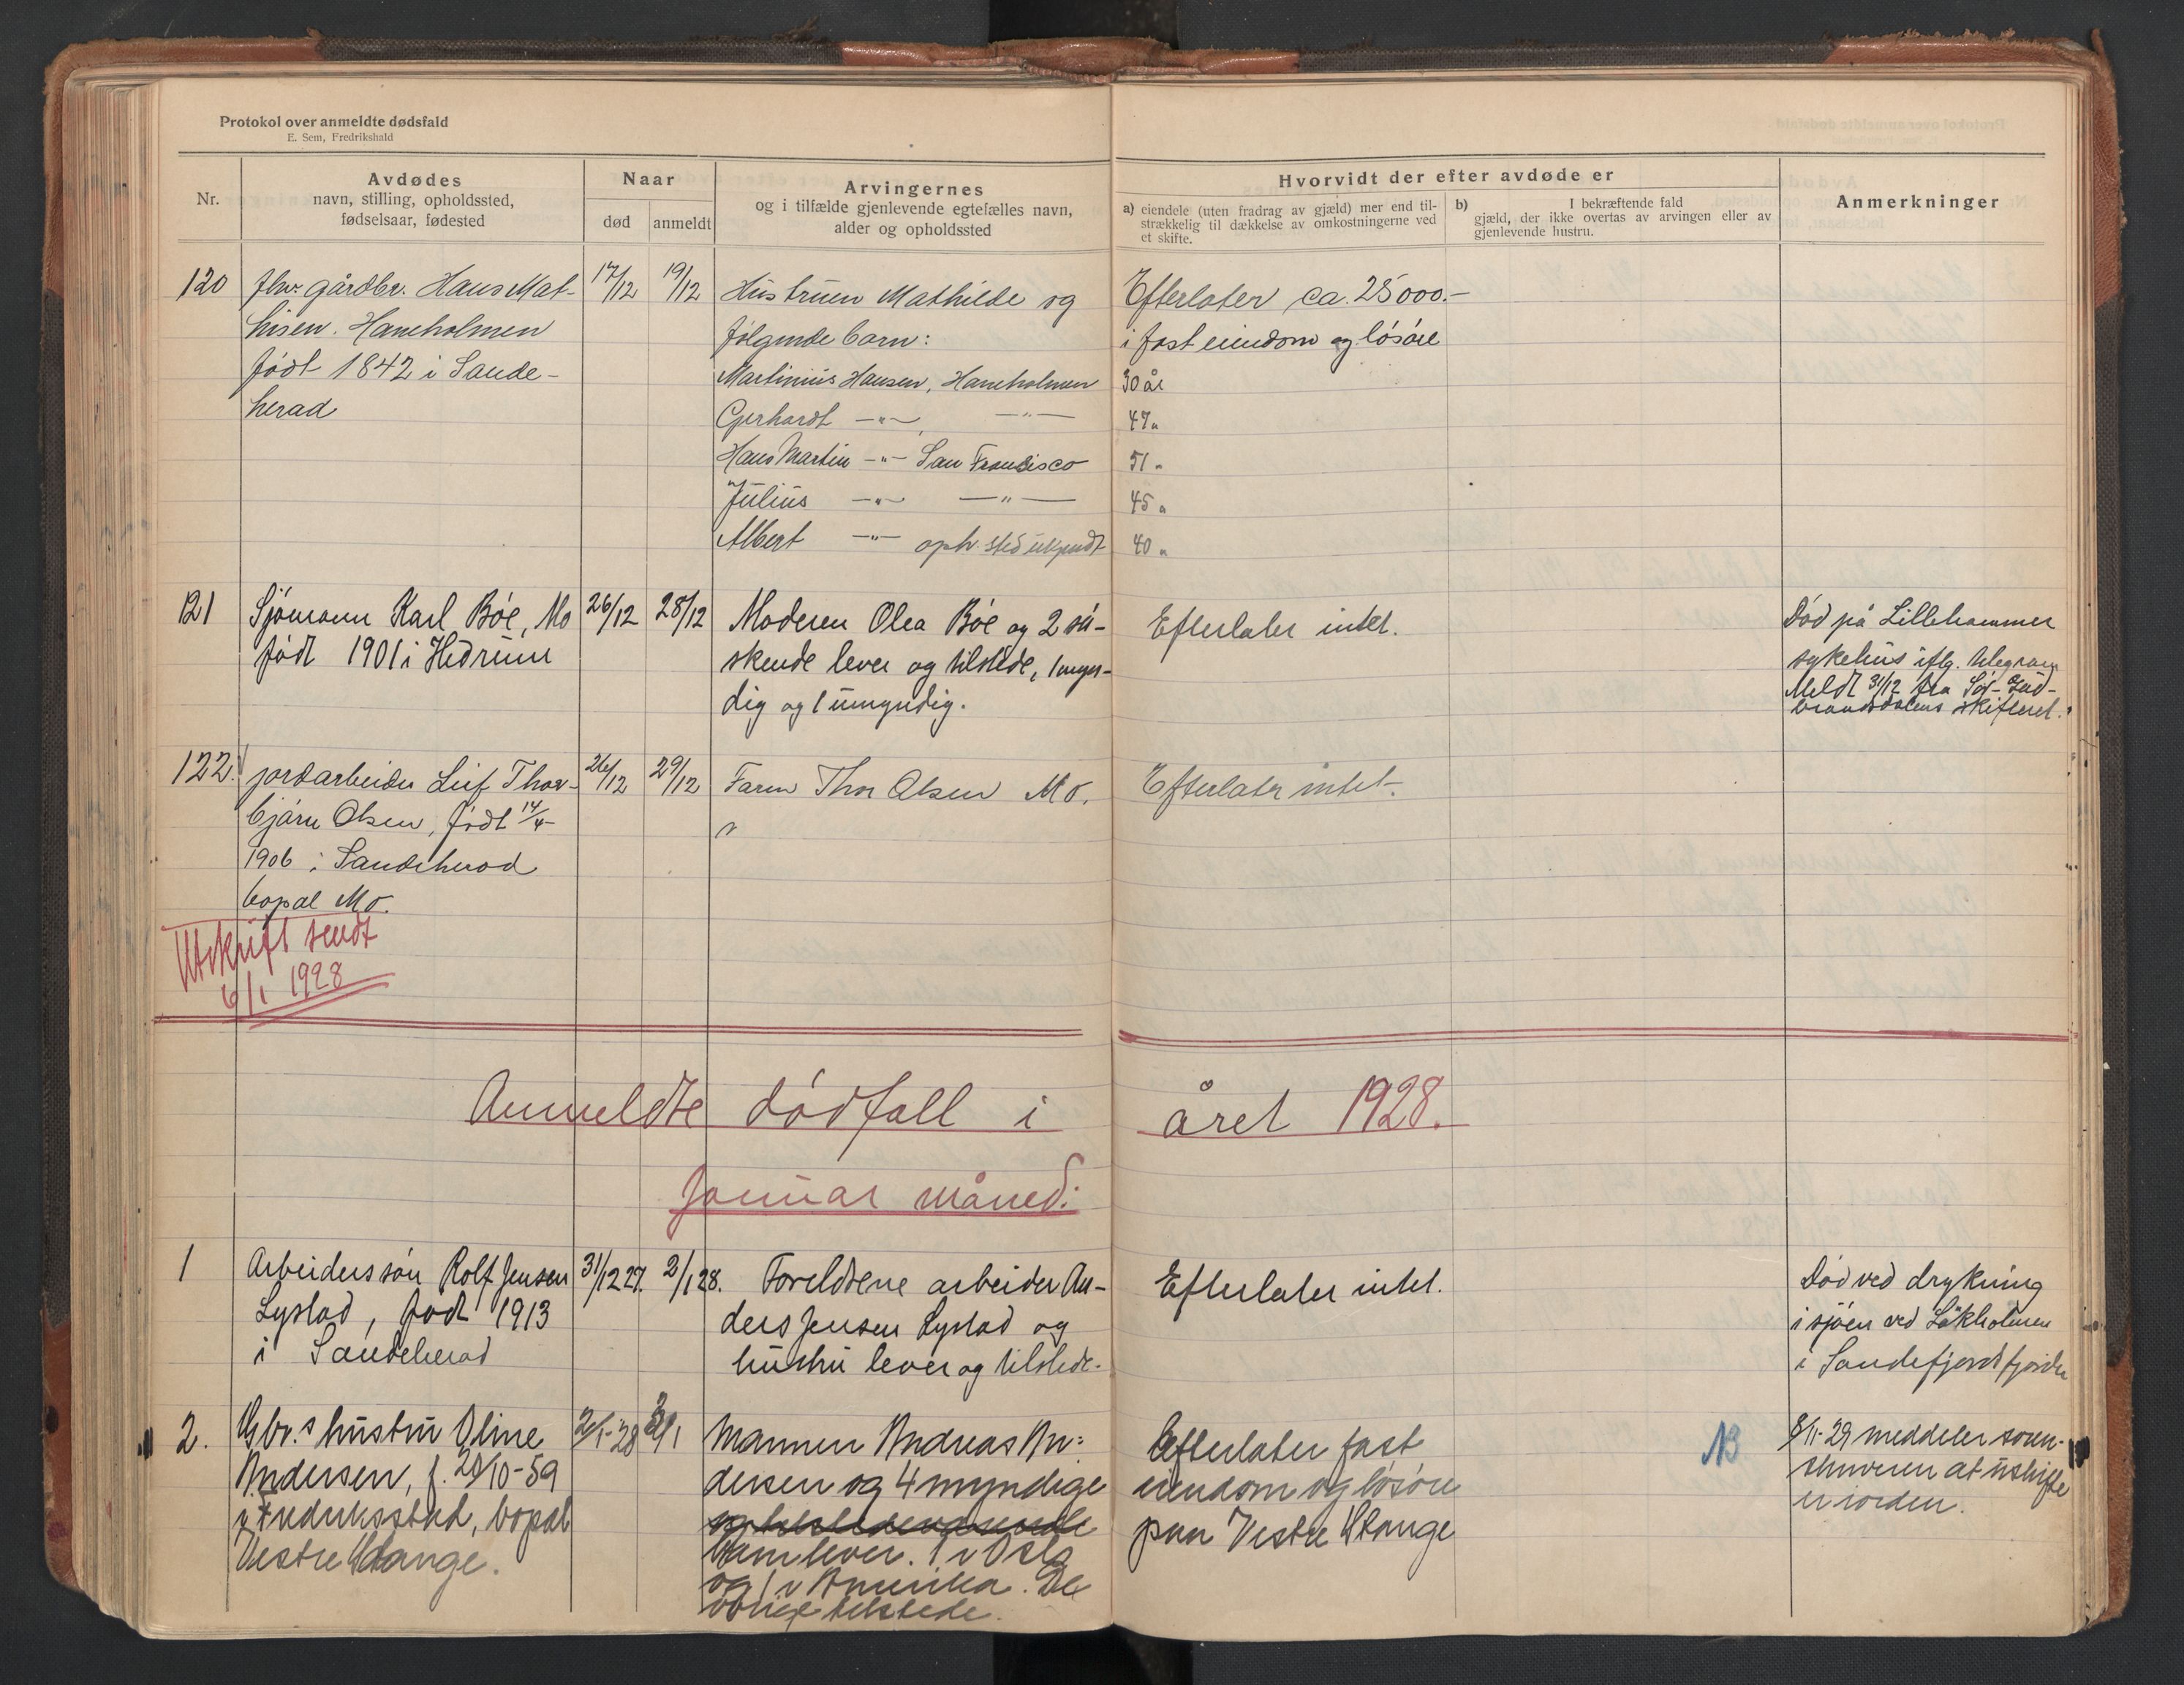 Protokol over anmeldte dødsfald
E. Sem, Fredrikshald
Nr.
Avdødes
navn, stilling, opholdssted,
fødselsaar, fødested
Naar
død
anmeldt
Arvingernes
og i tilfælde gjenlevende egtefælles navn,
alder og opholdssted
Hvorvidt der efter avdøde er
a) eiendele (uten fradrag av gjæld) mer end til-
strækkelig til dækkelse av omkostningerne ved
et skifte.
b) I bekræftende fald
gjæld, der ikke overtas av arvingen eller av
gjenlevende hustru.
Anmerkninger
120
fhv. gårdbr. Hans Mat-
hisen. Haneholmen
født 1842 i Sande-
herad
17/12
19/12
Hustruen Mathilde og
følgende barn:
Martinius Hansen, Haneholmen 30 år
Gerhardt -"-, -"- 47 "
Hans Martin -"- San Francisco 51 "
Julius -"- -"- 45 "
Albert -"- oph. sted ukjendt 40 "
Efterlater ca. 25000.-
i fast eiendom og løsøre
121
Sjømann Karl Bøe, Mo
født 1901 i Hedrum
26/12
28/12
Moderen Olea Bøe og 2 sø-
skende lever og tilstede, 1 myn-
dig og 1 umyndig.
Efterlater intet.
Død på Lillehammer
sykehus iflg. telegram
Meldt 31/12 fra Sør-Gud-
brandsdalens skifteret.
122.
jordarbeider Leif Thor-
bjørn Olsen, født 14/4
1906 i Sandeherad
bopæl Mo.
26/12
29/12
Faren Thor Olsen Mo.
Efterlater intet.
Utskrift sendt
6/1 1928
Anmeldte dødfall i året 1928.
Januar måned:
1
Arbeiderssøn Rolf Jensen
Lystad, født 1913
i Sandeherad
31/12 27.
2/1 28.
Foreldrene arbeider An-
ders Jensen Lystad og
hustru lever og tilstede.
Efterlater intet.
Død ved drukning
i sjøen ved Løkholmen
i Sandefjordsfjorden
2.
Gbr.s hustru Oline
Andersen, f. 20/10-59
i Fredriksstad, bopæl
Vestre Stange.
2/1-28
3/1
Mannen Andreas An-
dersen og 4 myndige
og tilstedeværende
barn lever. 1 i Oslo
og 1 i Amerika. De
øvrige tilstede.
Efterlater fast
eiendom og løsøre
paa Vestre Stange
NB
8/11-29 meddeler soren-
skriveren at uskifte
er iorden.